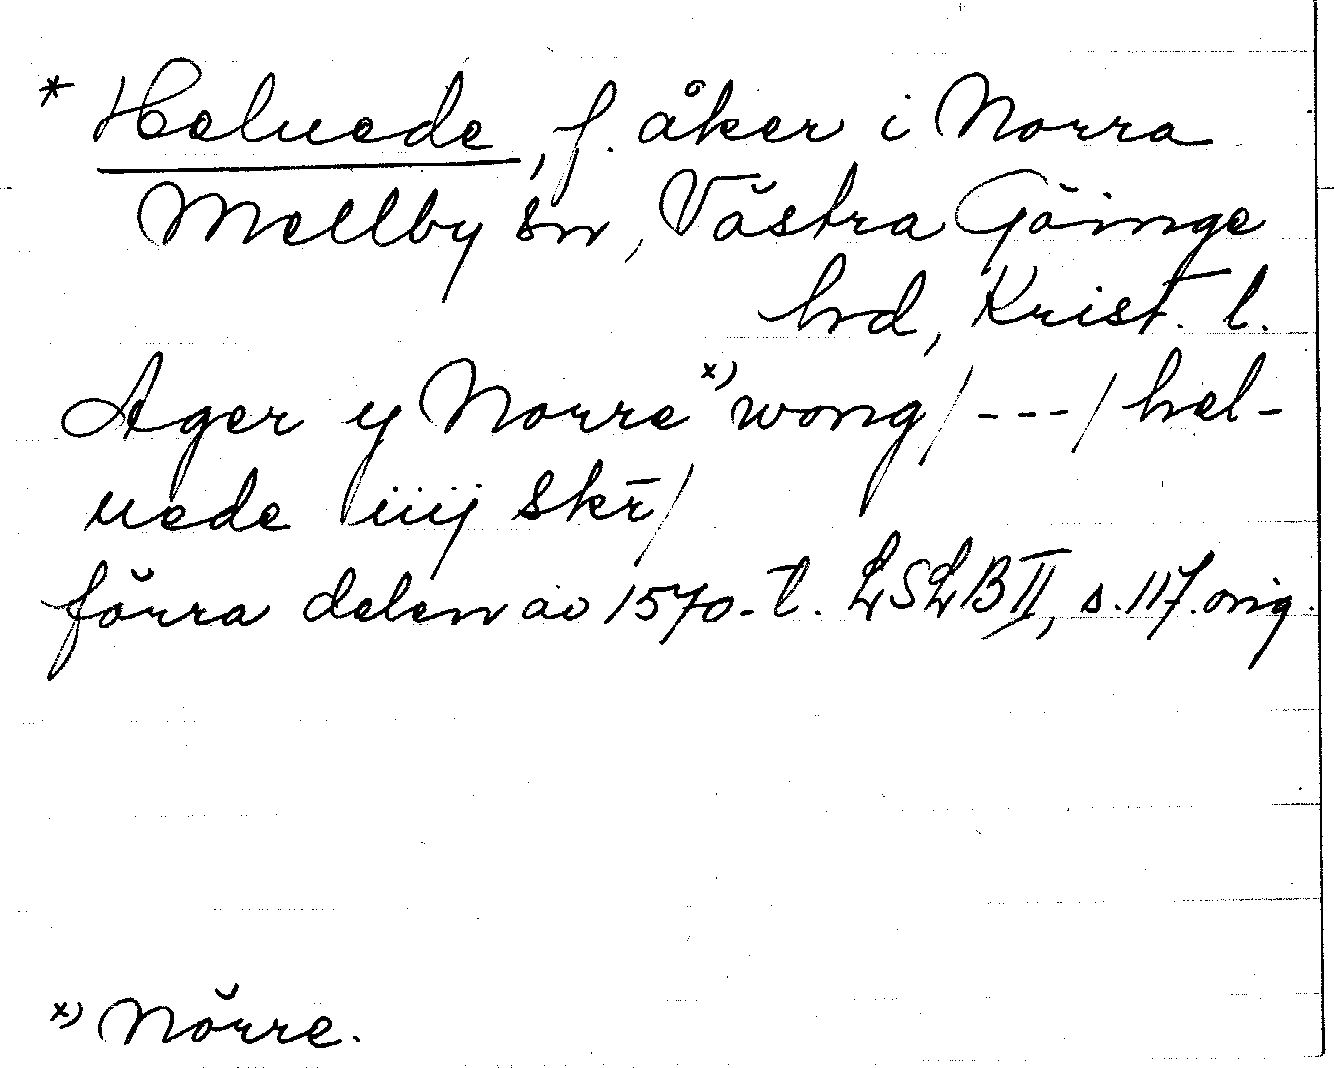 * Heluede, f. åker i Norra
Mellby sn, Västra Göinge
hd, Krist. l.
Ager y Norre x) wong/---/hel-
uede iiij Skr̄/
förra delen av 1570-t. LSLB II, s. 117. orig.
x) Nörre.